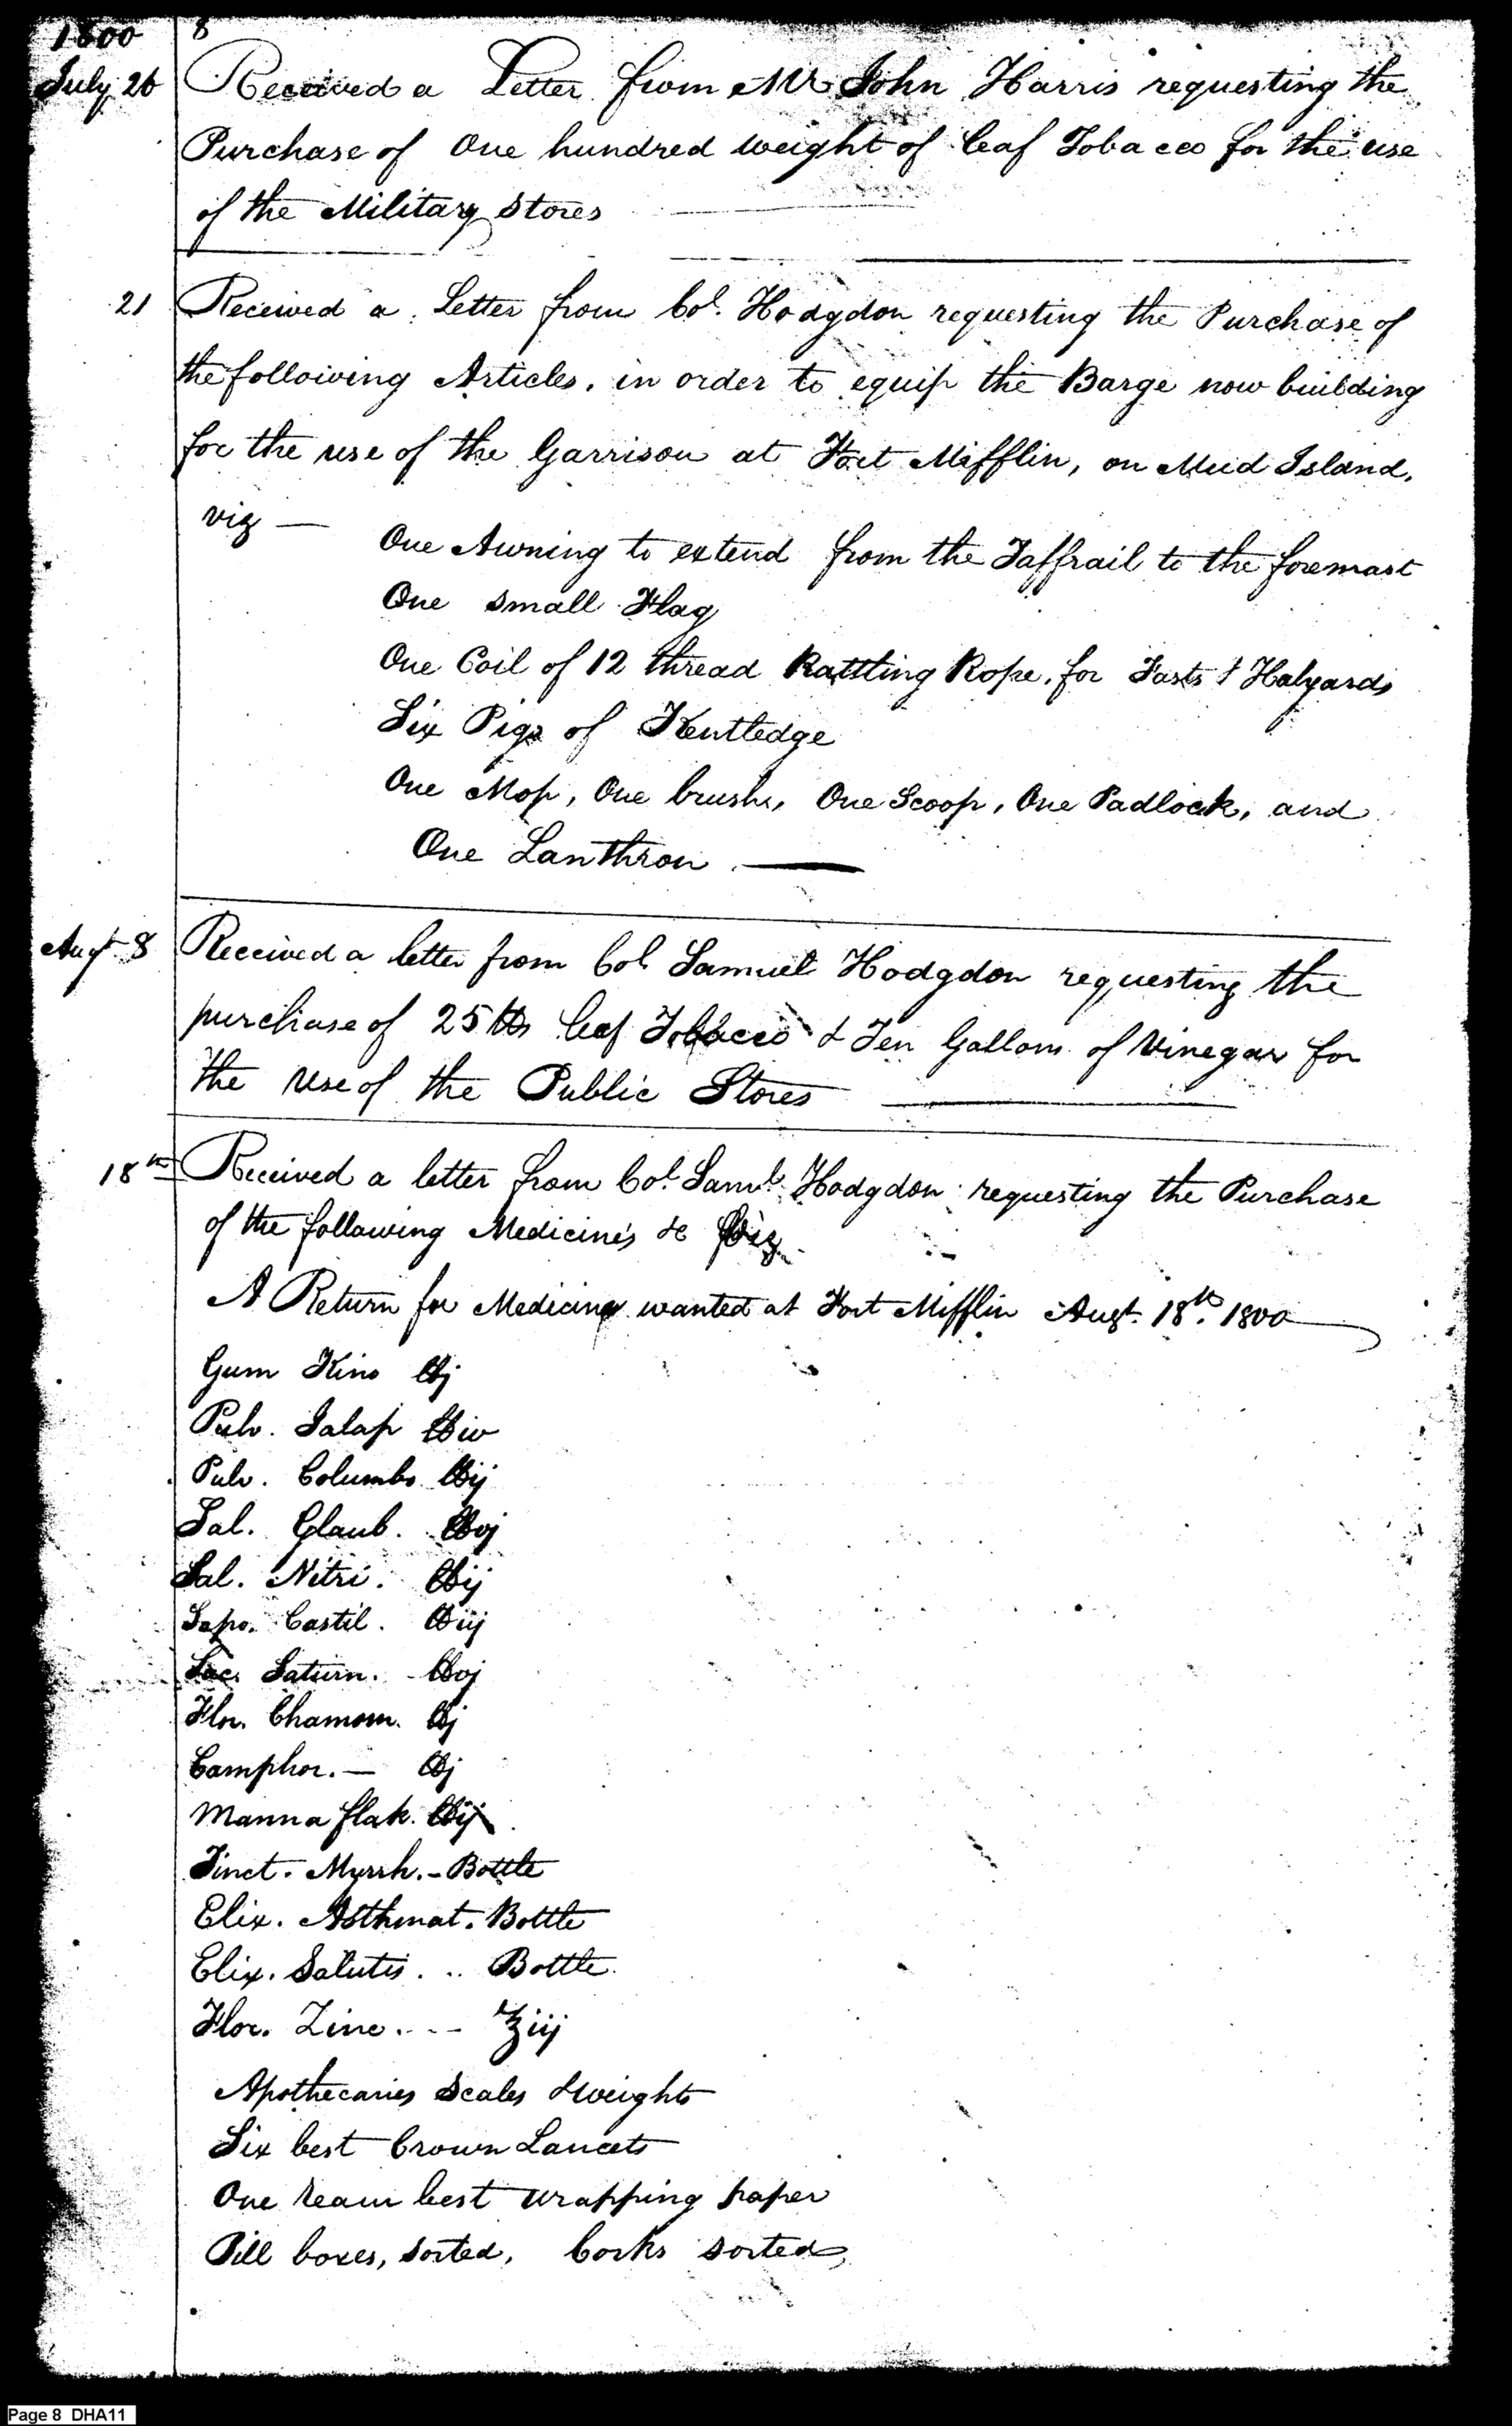 1800
8
July 26 Received a Letter from Mr John Harris requesting the
Purchase of One hundred weight of leaf Tobacco for the use
of the Military Stores
21 Received a Letter from Col. Hodgdon requesting the Purchase of
the following Articles, in order to equip the Barge now building
for the use of the Garrison at Fort Mifflin, on Mud Island.
viz —
One Awning to extend from the Taffrail to the foremast
One small Flag
One Coil of 12 thread Rattling Rope, for Fasts & Halyards
Six Pigs of Kentledge
One Mop, One brush, One Scoop, One Padlock, and
One Lanthron —
Augt 8 Received a letter from Col. Samuel Hodgdon requesting the
purchase of 25 lbs leaf Tobacco & Ten Gallons of Vinegar for
the use of the Public Stores —
18th Received a letter from Col. Saml. Hodgdon requesting the Purchase
of the following Medicines &c Viz
A Return for Medicine wanted at Fort Mifflin Augt. 18th. 1800
Gum Kino lbj
Pulv. Jalap lbiv
Pulv. Columbo lbij
Sal. Glaub. lbvj
Sal. Nitri. lbij
Sapo. Castil. lbiij
Sac. Saturn. - lbvj
Flor. Chamom. lbj
Camphor. — lbj
Manna flak. lbij
Tinct. Myrrh. - Bottle
Elix. Asthmat. Bottle
Elix. Salutis . .. Bottle
Flor. Zinc. .-- ℥iij
Apothecaries Scales & Weights
Six best Crown Lancets
One ream best wrapping paper
Pill boxes, sorted, Corks sorted,
Page 8 DHA11